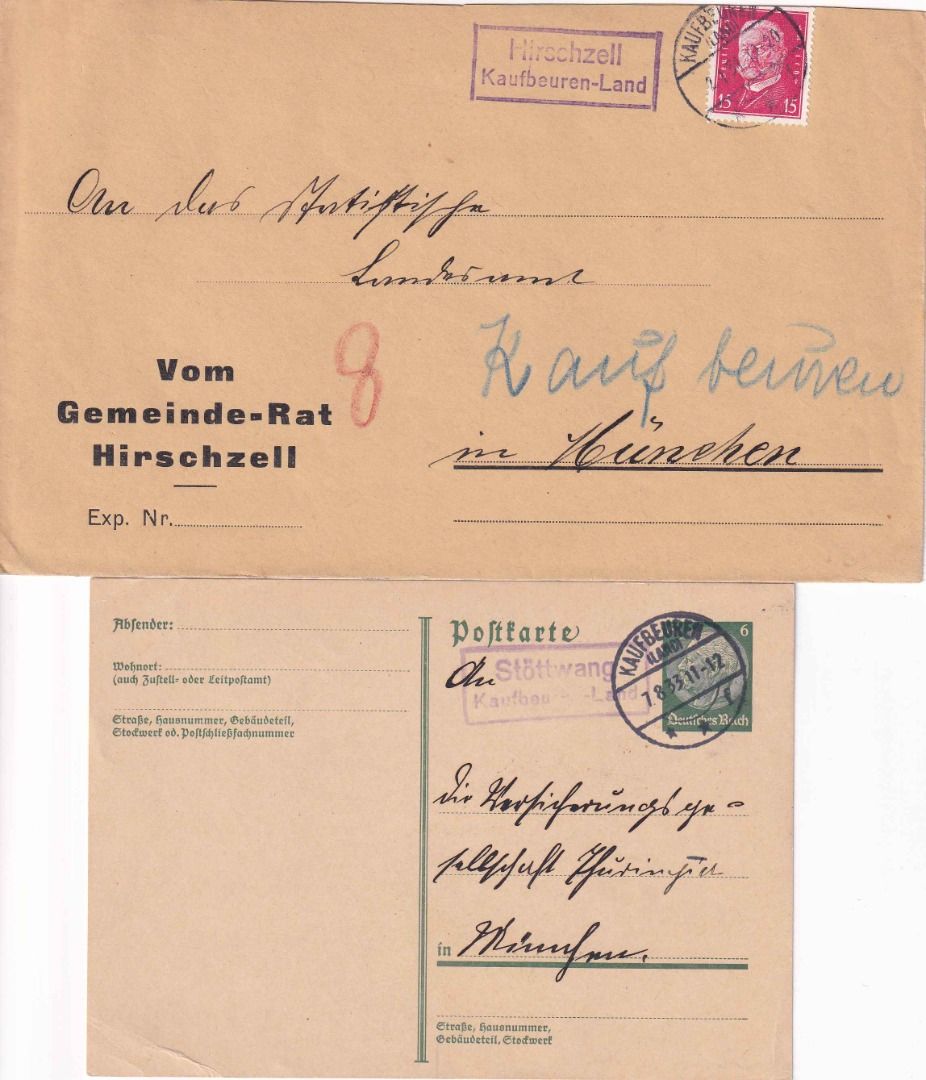 Hirschzell
Kaufbeuren-Land
KAUFBEUREN
(LAND)
15 15
An das Statistische
Landesamt
8
Kaufbeuren
Vom
Gemeinde-Rat
Hirschzell
in München
Exp. Nr.
Absender:
Wohnort:
(auch Zustell- oder Leitpostamt)
Straße, Hausnummer, Gebäudeteil,
Stockwerk od. Postschließfachnummer
Postkarte
6
Deutsches Reich
KAUFBEUREN
(LAND)
7.8.33.11-12
Stöttwang
Kaufbeu -Land
An
die Versicherungsge=
sellschaft Thuringia
in München.
Straße, Hausnummer,
Gebäudeteil, Stockwerk